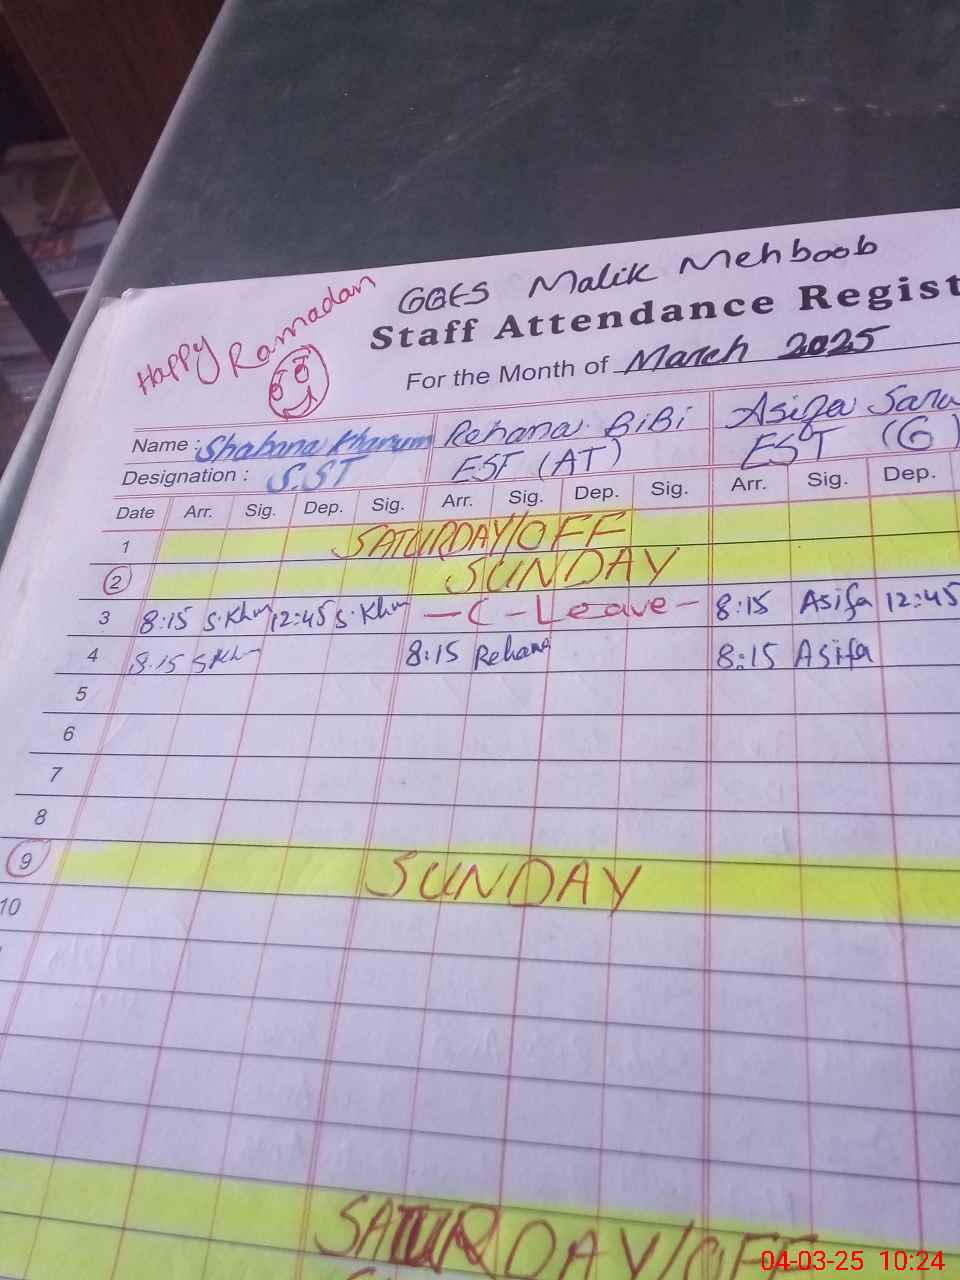 Happy Ramadan
GGES Malik Mehboob
Staff Attendance Regist
For the Month of March 2025
Name : Shabana Khanum Rehana BiBi Asifa Sara
Designation : S.ST EST (AT) EST (G)
Date Arr. Sig. Dep. Sig. Arr. Sig. Dep. Sig. Arr. Sig. Dep.
1 SATURDAY/OFF
2 SUNDAY
3 8:15 S.Khm 12:45 S.Khm - C - Leave - 8:15 Asifa 12:45
4 8:15 S.Khm 8:15 Rehana 8:15 Asifa
5
6
7
8
9 SUNDAY
10
SATURDAY/OFF
04-03-25 10:24